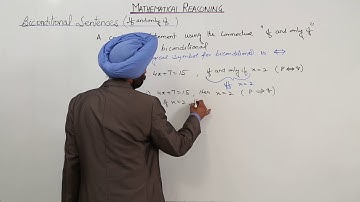 MATHEMATICAL REASONING
Biconditional Sentences (If and only if)
A co ement using the connective "if and only if"
biconditional
ogical symbol for biconditional is ⇔
4x+7=15, if and only if x=2 (P ⇔ q)
iff x=2
4x+7=15, then x=2 (P ⇒ q)
If x=2